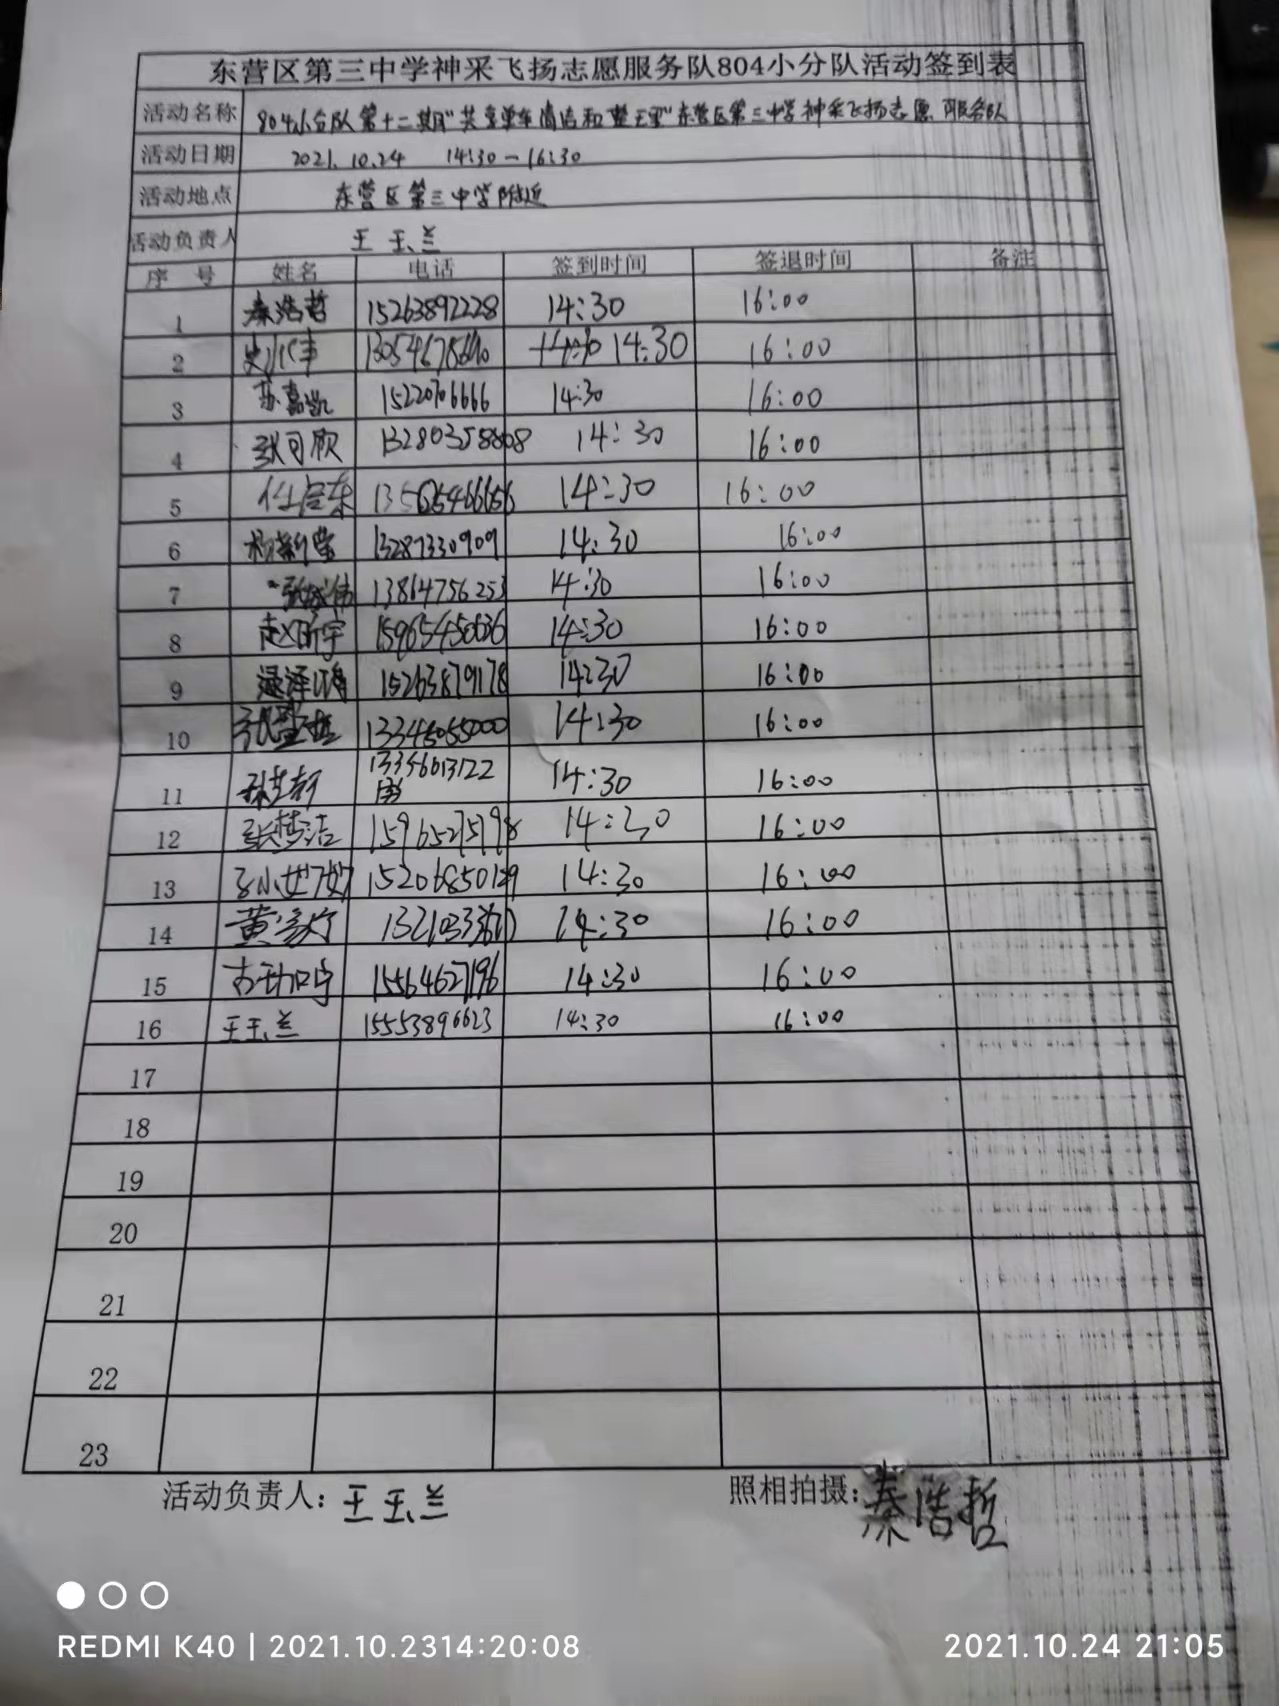 东营区第三中学神采飞扬志愿服务队804小分队活动签到表
活动名称 804小分队第十二期"共享单车清洁和整理"东营区第三中学神采飞扬志愿服务队
活动日期 2021.10.24 14:30-16:30
活动地点 东营区第三中学附近
活动负责人 王玉兰
序 号 姓名 电话 签到时间 签退时间 备注
1 秦浩哲 15263892228 14:30 16:00
2 14:30 16:00
3 苏嘉凯 15220706666 14:30 16:00
4 张可欣 14:30 16:00
5 14:30 16:00
6 13287330909 14:30 16:00
7 13864756253 14:30 16:00
8 赵昕宇 15965450636 14:30 16:00
9 15263879178 14:30 16:00
10 13345055000 14:30 16:00
11 13356013122 14:30 16:00
12 张梦洁 15965275198 14:30 16:00
13 14:30 16:00
14 14:30 16:00
15 15564627196 14:30 16:00
16 王玉兰 15553896623 14:30 16:00
17
18
19
20
21
22
23
活动负责人：王玉兰 照相拍摄：秦浩哲
REDMI K40 | 2021.10.2314:20:08 2021.10.24 21:05